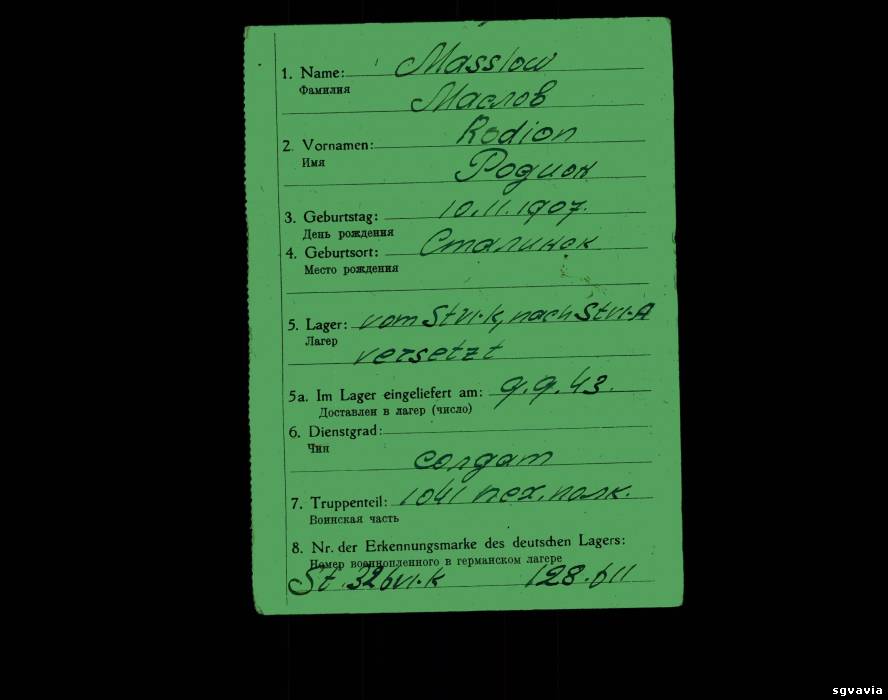 1. Name: Masslow
Фамилия
Маслов
2. Vornamen: Rodion
Имя
Родион
3. Geburtstag: 10.11.1907.
День рождения
4. Geburtsort: Сталинск
Место рождения
5. Lager: vom St VI-K, nach St VI-A
Лагер
versetzt
5a. Im Lager eingeliefert am: 9.9.43.
Доставлен в лагер (число)
6. Dienstgrad:
Чин
солдат
7. Truppenteil: 1041 пех. полк.
Воинская часть
8. Nr. der Erkennungsmarke des deutschen Lagers:
Номер военнопленного в германском лагере
St. 326 VI-K 128.611
sgvavia